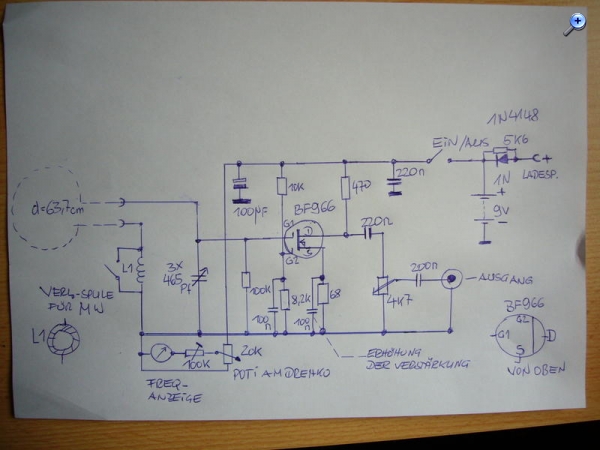 1N4148
EIN/AUS
5K6
1N
+
LADESP.
220n
+
9V
d=63,7cm
100µF
10K
BF966
470
G1
D
S
G2
220n
200n
AUSGANG
L1
3x
465
Pf
100K
8,2K
68
100
n
100
n
4K7
BF966
G2
G1
D
S
VON OBEN
VERL-SPULE
FÜR MW
L1
100K
20K
POTI AM DREHKO
ERHÖHUNG
DER VERSTÄRKUNG
FREQ-
ANZEIGE